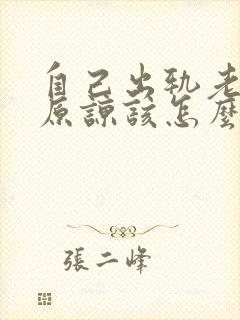 自己出轨老
原諒該怎麼
張二峰